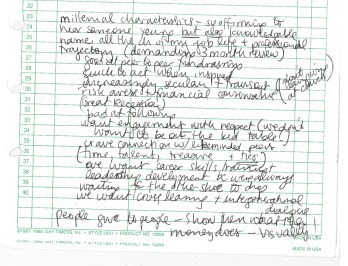 millenial characteristics - so affirming to
hear someone young but also knowledgable
name all the in my job life + professional
trajectory (demanding 3 month review)
Good at peer to peer fundraising
Quick to act when inspired
increasingly secular + transient
risk averse + financial conservative
(Great Recession)
bad at following
want engagement with respect (we don't
want to be at the kid table!)
crave connection w/ likeminded peers
(Time, talent, treasure + ties)
we want career skills/training
leadership development bc we're always
waiting for the other shoe to drop
we want cross learning + intergenerational
dialogue
people give to people - show them what
money does - visually
MADE IN USA